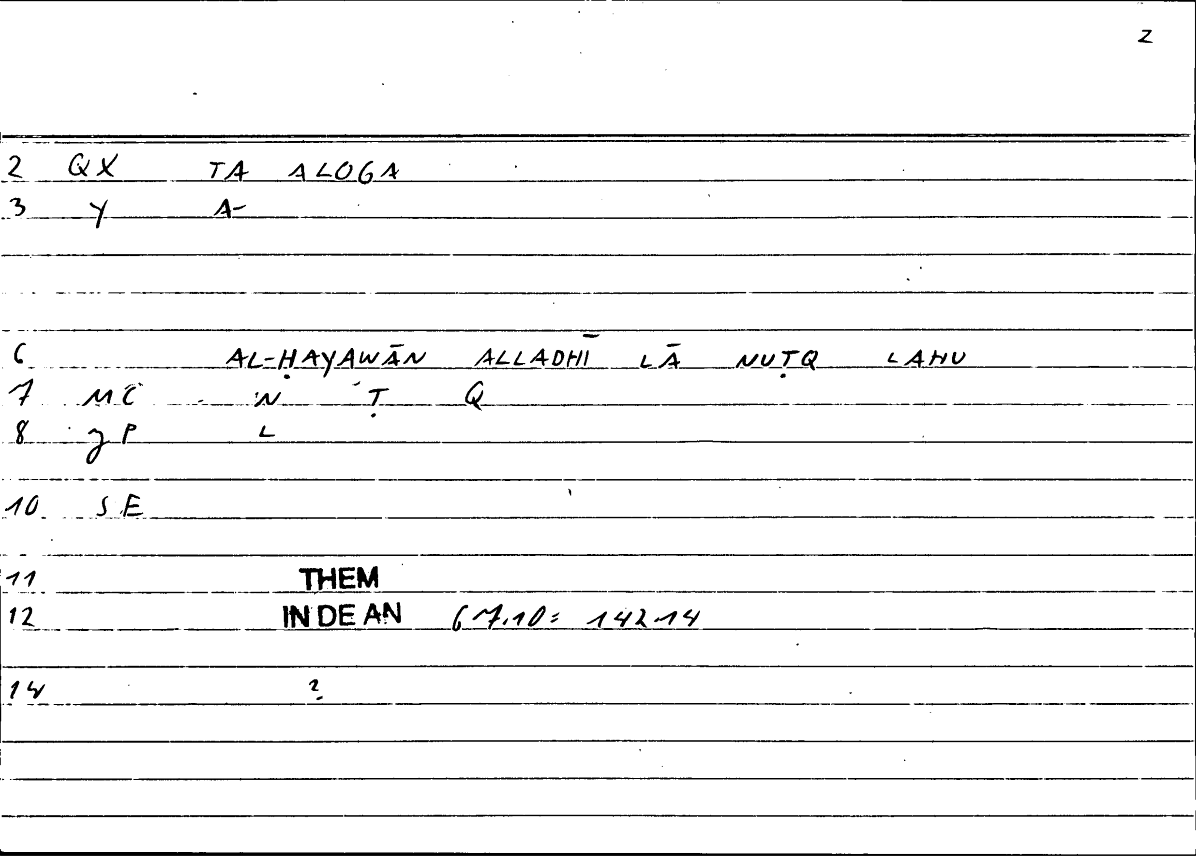 2
2 QX TA ALOGA
3 Y A-
6 AL-ḤAYAWĀN ALLADHĪ LĀ NUṬQ LAHU
7 MC N Ṭ Q
8 P L
10 SE
11 THEM
12 IN DE AN 67.10= 142.14
14 2